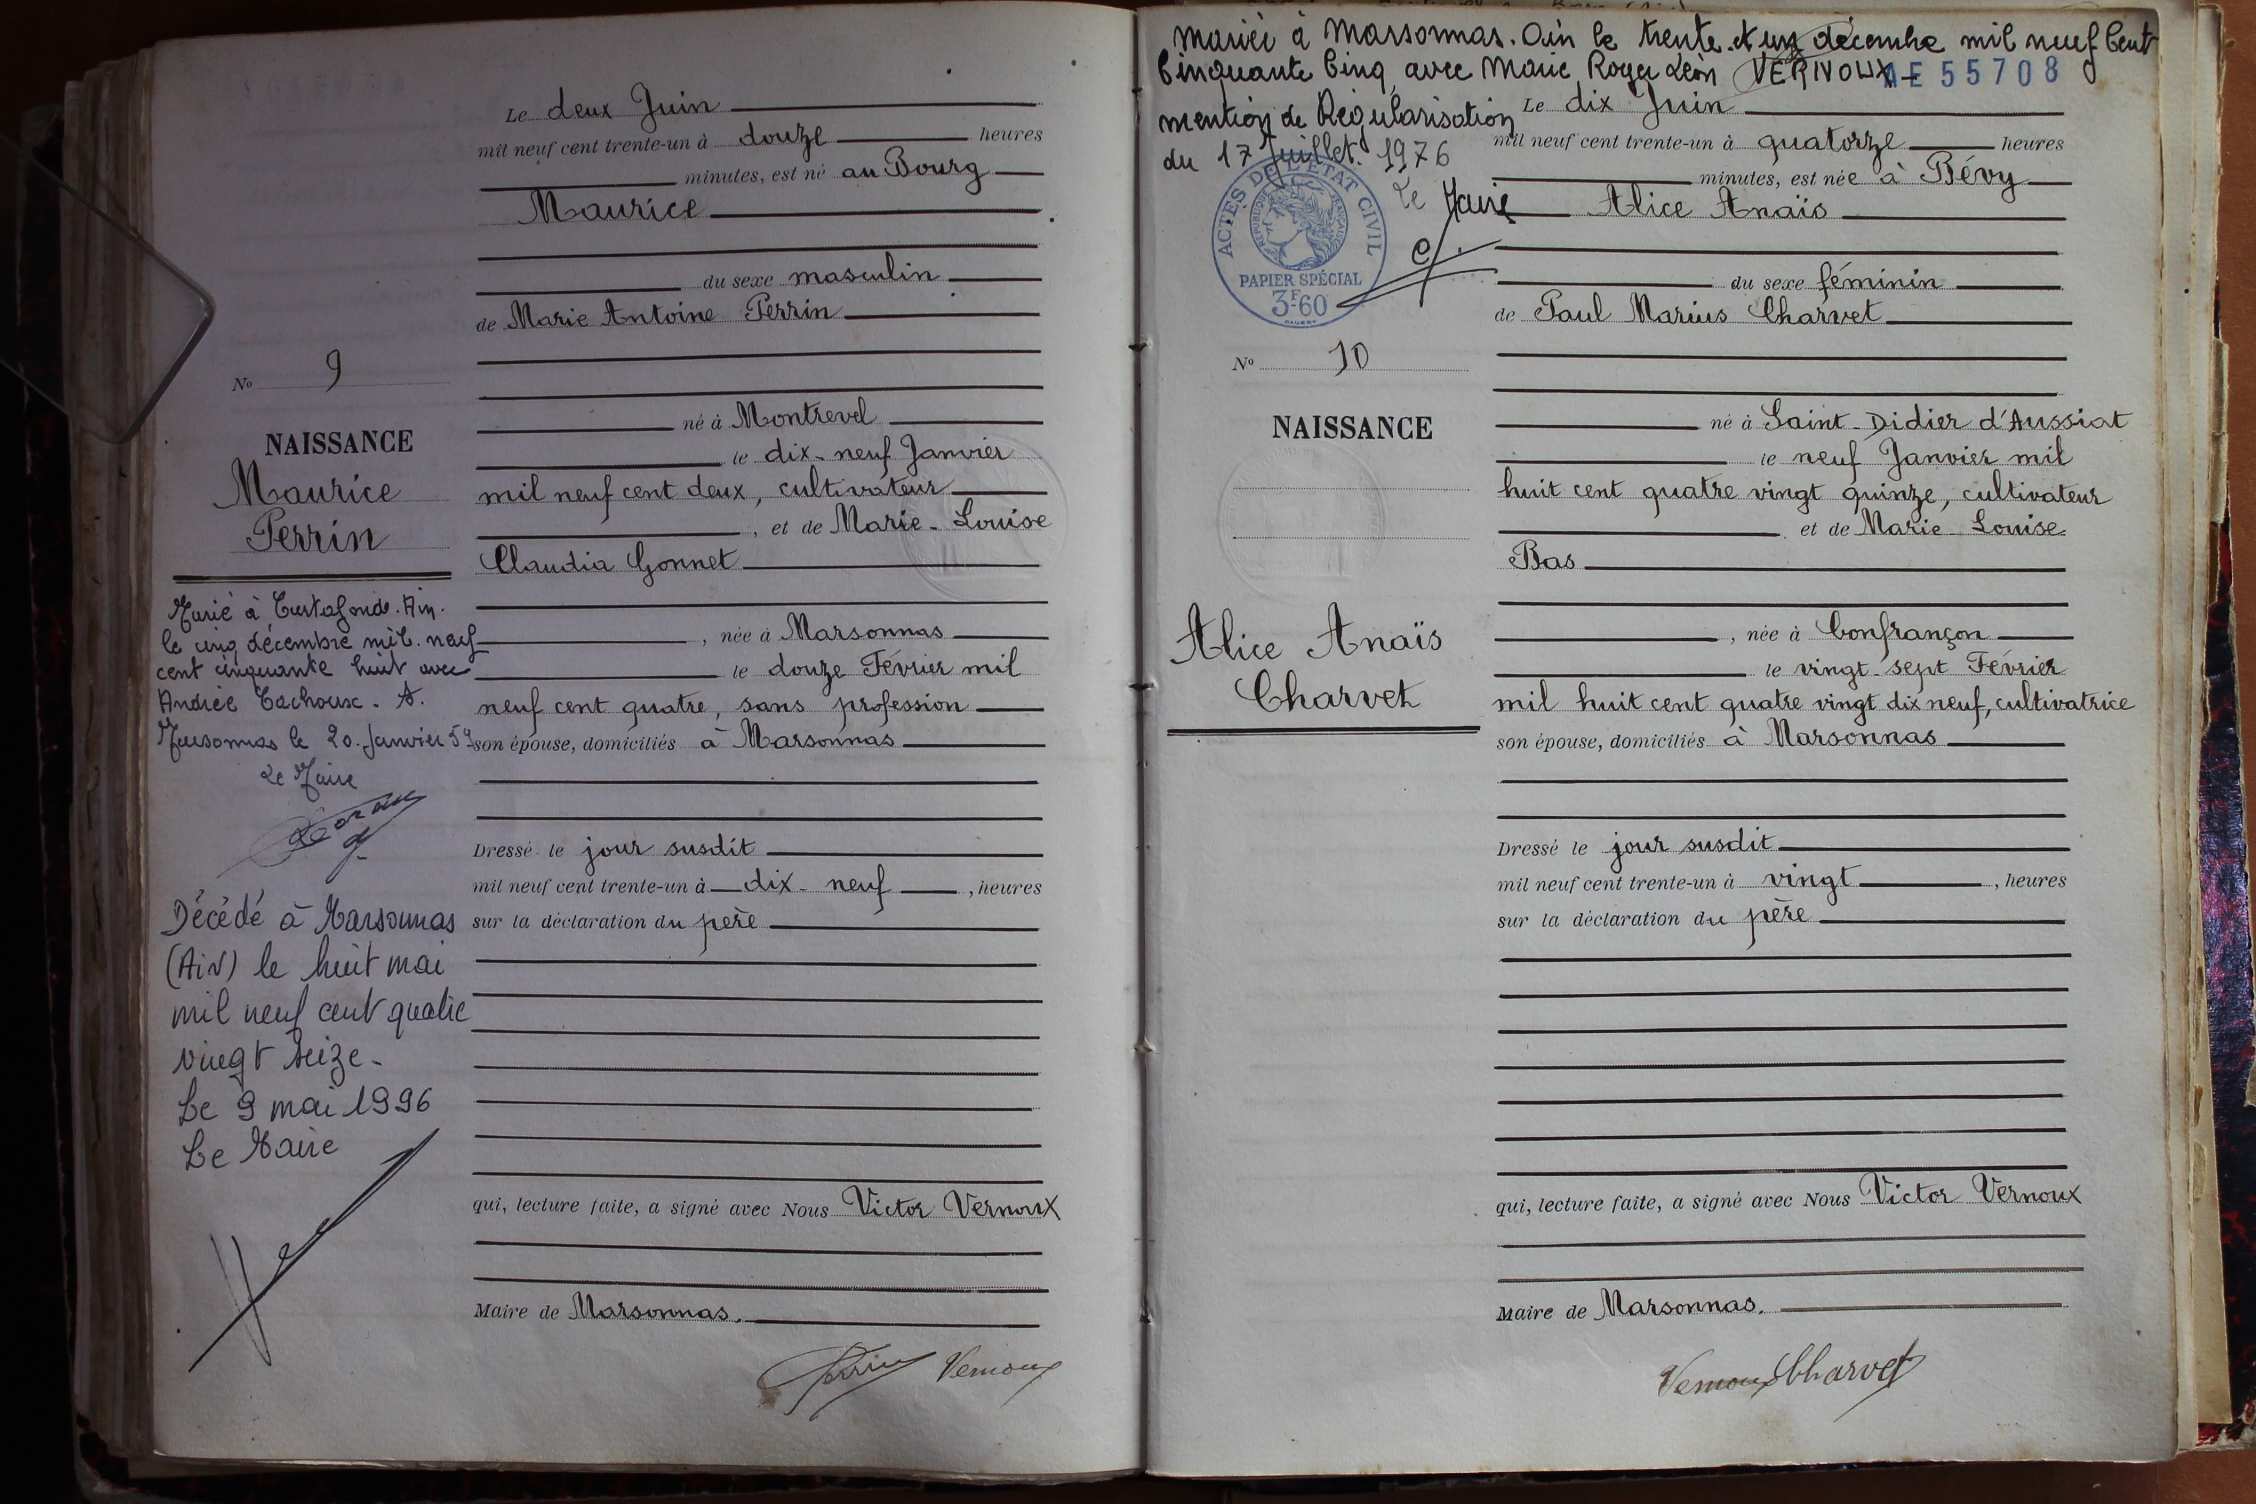 Le deux Juin
mil neuf cent trente-un à douze heures
minutes, est né au Bourg
Maurice
du sexe masculin
de Marie Antoine Perrin
né à Montrevel
le dix-neuf Janvier
mil neuf cent deux, cultivateur
, et de Marie-Louise
Claudia Gonnet
, née à Marsonnas
le douze Février mil
neuf cent quatre, sans profession
son épouse, domiciliés à Marsonnas
Dressé le jour susdit
mil neuf cent trente-un à dix-neuf, heures
sur la déclaration du père
qui, lecture faite, a signé avec Nous Victor Vernoux
Maire de Marsonnas.
Perrin Vernoux
No 9
NAISSANCE
Maurice
Perrin
Marié à Curtafond. Ain.
le cinq décembre mil. neuf
cent cinquante huit avec
Andrée
Marsonnas le 20. Janvier 59
Le Maire
Décédé à Marsonnas
(AIN) le huit mai
mil neuf cent quatre
vingt seize -
Le 9 mai 1996
Le Maire
Mariée à Marsonnas. Ain le trente et un décembre mil neuf Cent
Cinquante Cinq avec Marie Roger Léon
mention de Régularisation
du 17 Juillet. 1976
Le Maire
AE 55708
ACTES DE L'ETAT CIVIL
REPUBLIQUE FRANÇAISE
PAPIER SPÉCIAL
3F60
Le dix Juin
mil neuf cent trente-un à quatorze heures
minutes, est née à Bévy
Alice Anaïs
du sexe féminin
de Paul Marius Charvet
né à Saint-Didier d'Aussiat
le neuf Janvier mil
huit cent quatre vingt quinze, cultivateur
et de Marie-Louise
Bas
, née à Confrançon
le vingt-sept Février
mil huit cent quatre vingt dix neuf, cultivatrice
son épouse, domiciliés à Marsonnas
Dressé le jour susdit
mil neuf cent trente-un à vingt, heures
sur la déclaration du père
qui, lecture faite, a signé avec Nous Victor Vernoux
Maire de Marsonnas.
Vernoux Charvet
No 10
NAISSANCE
Alice Anaïs
Charvet